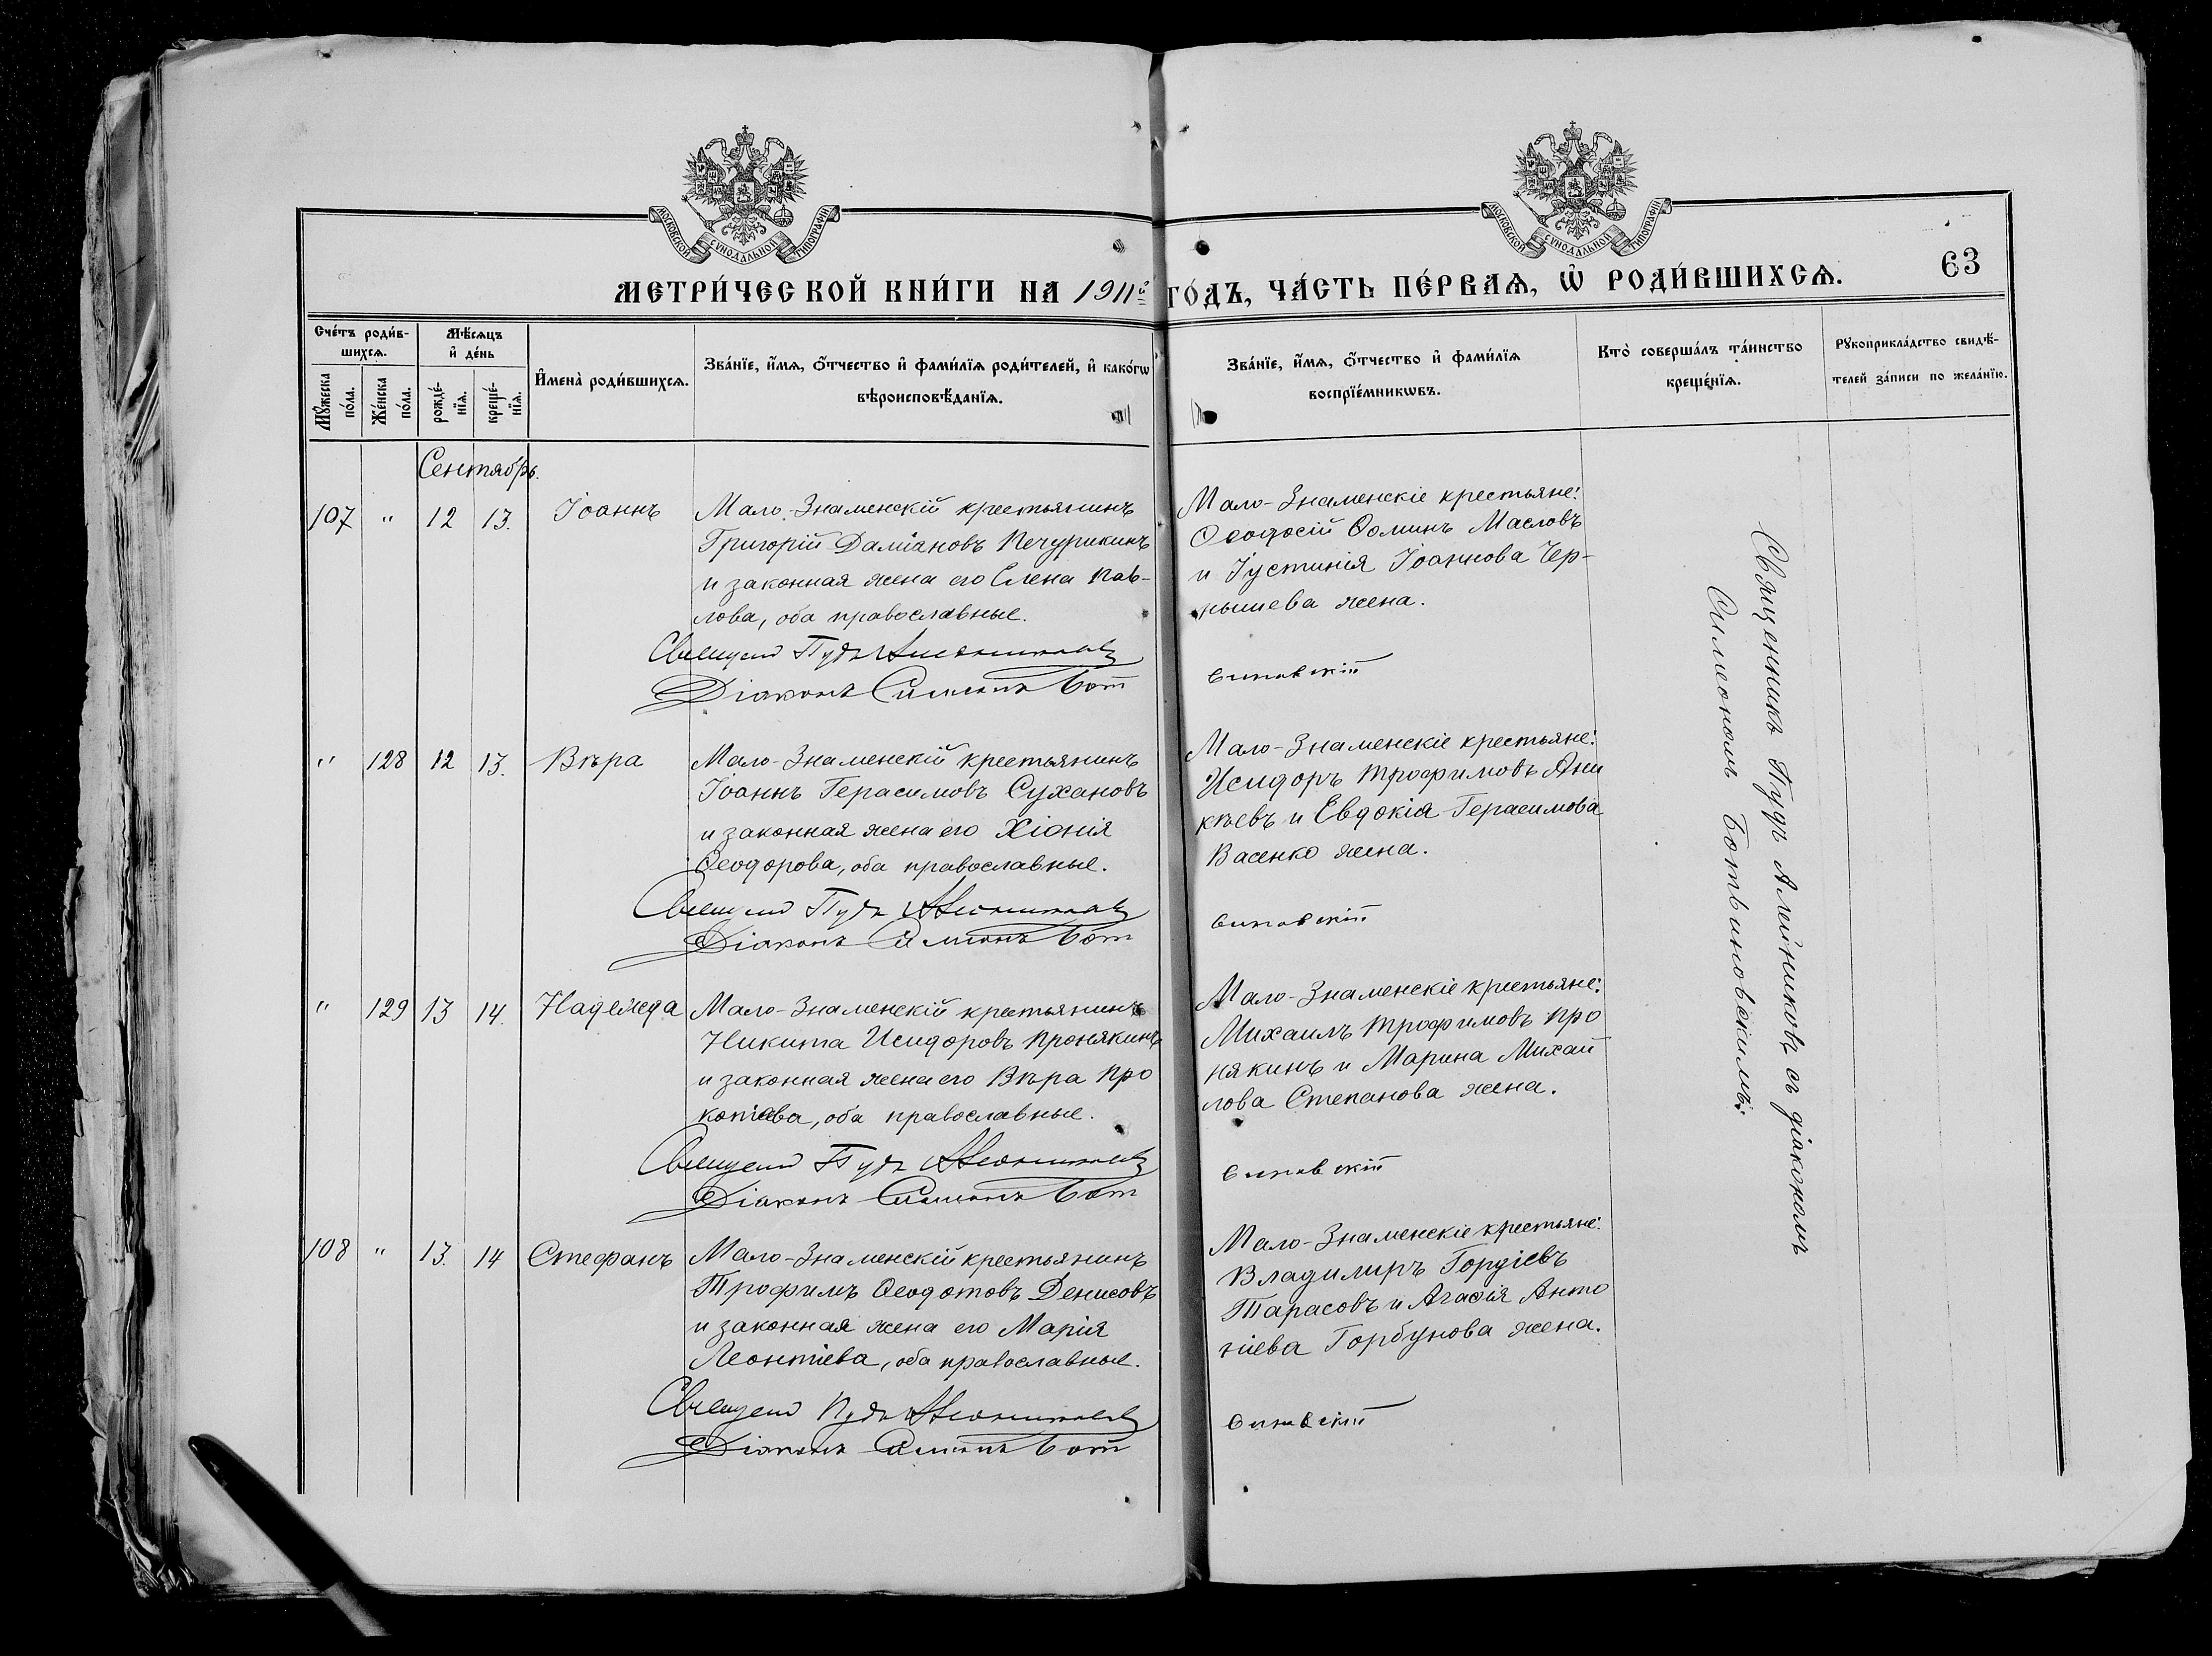 МОСКОВСКОЙ СѴНОДАЛЬНОЙ ТИПОГРАФІИ
МОСКОВСКОЙ СѴНОДАЛЬНОЙ ТИПОГРАФІИ
63
МЕТРИ́ЧЕСКОЙ КНИ́ГИ НА 1911й ГО́ДЪ, ЧА́СТЬ ПЕ́РВАѦ, Ѡ҆ РОДИ́ВШИХСѦ.
Сче́тъ роди́в-
шихсѧ.
Мꙋ́жеска по́ла.
Же́нска по́ла.
Мѣ́сѧцъ
и҆ де́нь
рожде́-
нїѧ.
креще́-
нїѧ.
И҆мена̀ роди́вшихсѧ.
Зва́нїе, и҆́мѧ, ѻ҆́тчество и҆ фами́лїѧ роди́телей, и҆ како́гѡ
вѣроисповѣ́данїѧ.
Зва́нїе, и҆́мѧ, ѻ҆́тчество и҆ фами́лїѧ
воспрїе́мникѡвъ.
Кто̀ соверша́лъ та́инство
креще́нїѧ.
Рꙋкоприкла́дство свидѣ́-
телей за́писи по жела́нїю.
Сентябрь.
107 " 12 13. Іоаннъ
Мало-Знаменскій крестьянинъ
Григорій Даміановъ Печурикинъ
и законная жена его Елена Пав-
лова, оба православные.
Священ Пудъ Алейниковъ
Діаконъ Симеонъ Бот
Мало-Знаменскіе крестьяне:
Ѳеодосій Ѳоминъ Масловъ
и Іустинія Іоаннова Чер-
нышева жена.
виновскій
" 128 12 13. Вѣра
Мало-Знаменскій крестьянинъ
Іоаннъ Герасимовъ Сухановъ
и законная жена его Хіонія
Ѳеодорова, оба православные.
Священ Пудъ Алейниковъ
Діаконъ Симеонъ Бот
Мало-Знаменскіе крестьяне:
Исидоръ Трофимовъ Ани
кѣевъ и Евдокія Герасимова
Васенко жена.
виновскій
" 129 13 14. Надежда
Мало-Знаменскій крестьянинъ
Никита Исидоровъ Пронякинъ
и законная жена его Вѣра Про
копіева, оба православные.
Священ Пудъ Алейниковъ
Діаконъ Симеонъ Бот
Мало-Знаменскіе крестьяне:
Михаилъ Трофимовъ Про
някинъ и Марина Михай
лова Степанова жена.
виновскій
108 " 13. 14 Стефанъ
Мало-Знаменскій крестьянинъ
Трофимъ Ѳеодотовъ Денисовъ
и законная жена его Марія
Леонтіева, оба православные.
Священ Пудъ Алейниковъ
Діаконъ Симеонъ Бот
Мало-Знаменскіе крестьяне:
Владимиръ Гордіевъ
Тарасовъ и Агаѳія Анто
ніева Горбунова жена.
виновскій
Священникъ Пудъ Алейниковъ съ діакономъ
Симеономъ Ботвиновскимъ.